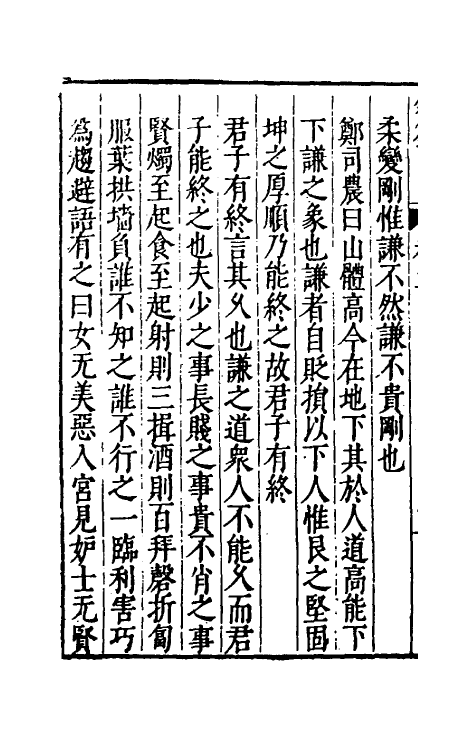 柔變剛惟謙不然謙不貴剛也
鄭司農曰山體高今在地下其於人道高能下
下謙之象也謙者自貶損以下人惟艮之堅固
坤之厚順乃能終之故君子有終
君子有終言其乆也謙之道衆人不能乆而君
子能終之也夫少之事長賤之事貴不肖之事
賢燭至起食至起射則三揖酒則百拜磬折匐
服葉拱墻負誰不知之誰不行之一臨利害巧
爲趨避語有之曰女无美惡入宮見妒士无賢